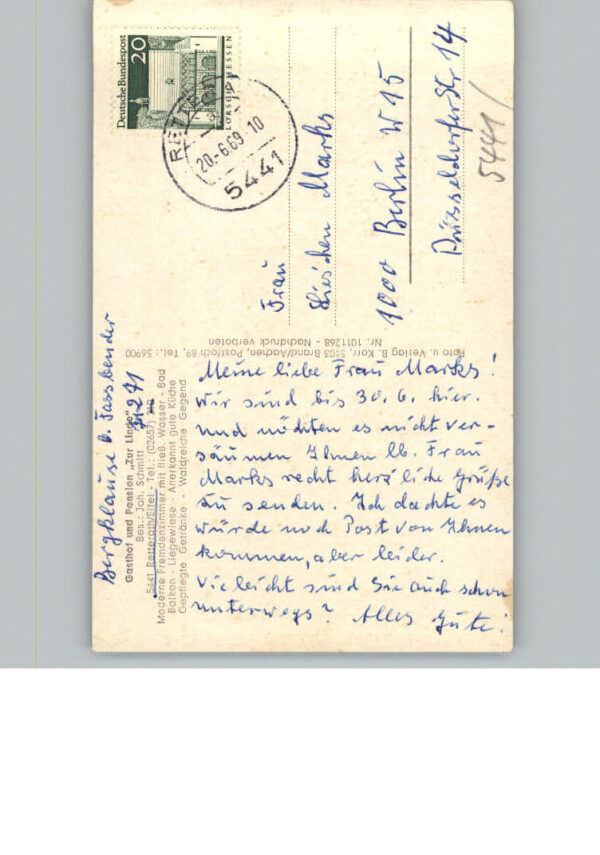 Bergklause b. Fassbender
Gasthof und Pension „Zur Linde“
Bes.: Joh. Schmitt
5441 Retterath/Eifel - Tel.: (02657)
271
Moderne Fremdenzimmer mit fließ. Wasser - Bad
Balkon - Liegewiese - Anerkannt gute Küche
Gepflegte Getränke - Waldreiche Gegend
Meine liebe Frau Marks!
Wir sind bis 30.6. hier.
und möchten es nicht ver-
säumen Ihnen lb. Frau
Marks recht herzliche Grüße
zu senden. Ich dachte es
würde noch Post von Ihnen
kommen, aber leider.
Vieleicht sind Sie auch schon
unterwegs? Alles Gute!
Foto u. Verlag B. Korr, 5103 Brand/Aachen, Postfach 89, Tel.: 56900
Nr. 1011268 - Nachdruck verboten
Deutsche Bundespost
20
LORSCH/HESSEN
20.-6.69.10
5441
Frau
Lieschen Marks
1000 Berlin W 15
Düsseldorfer Str 14
5441/